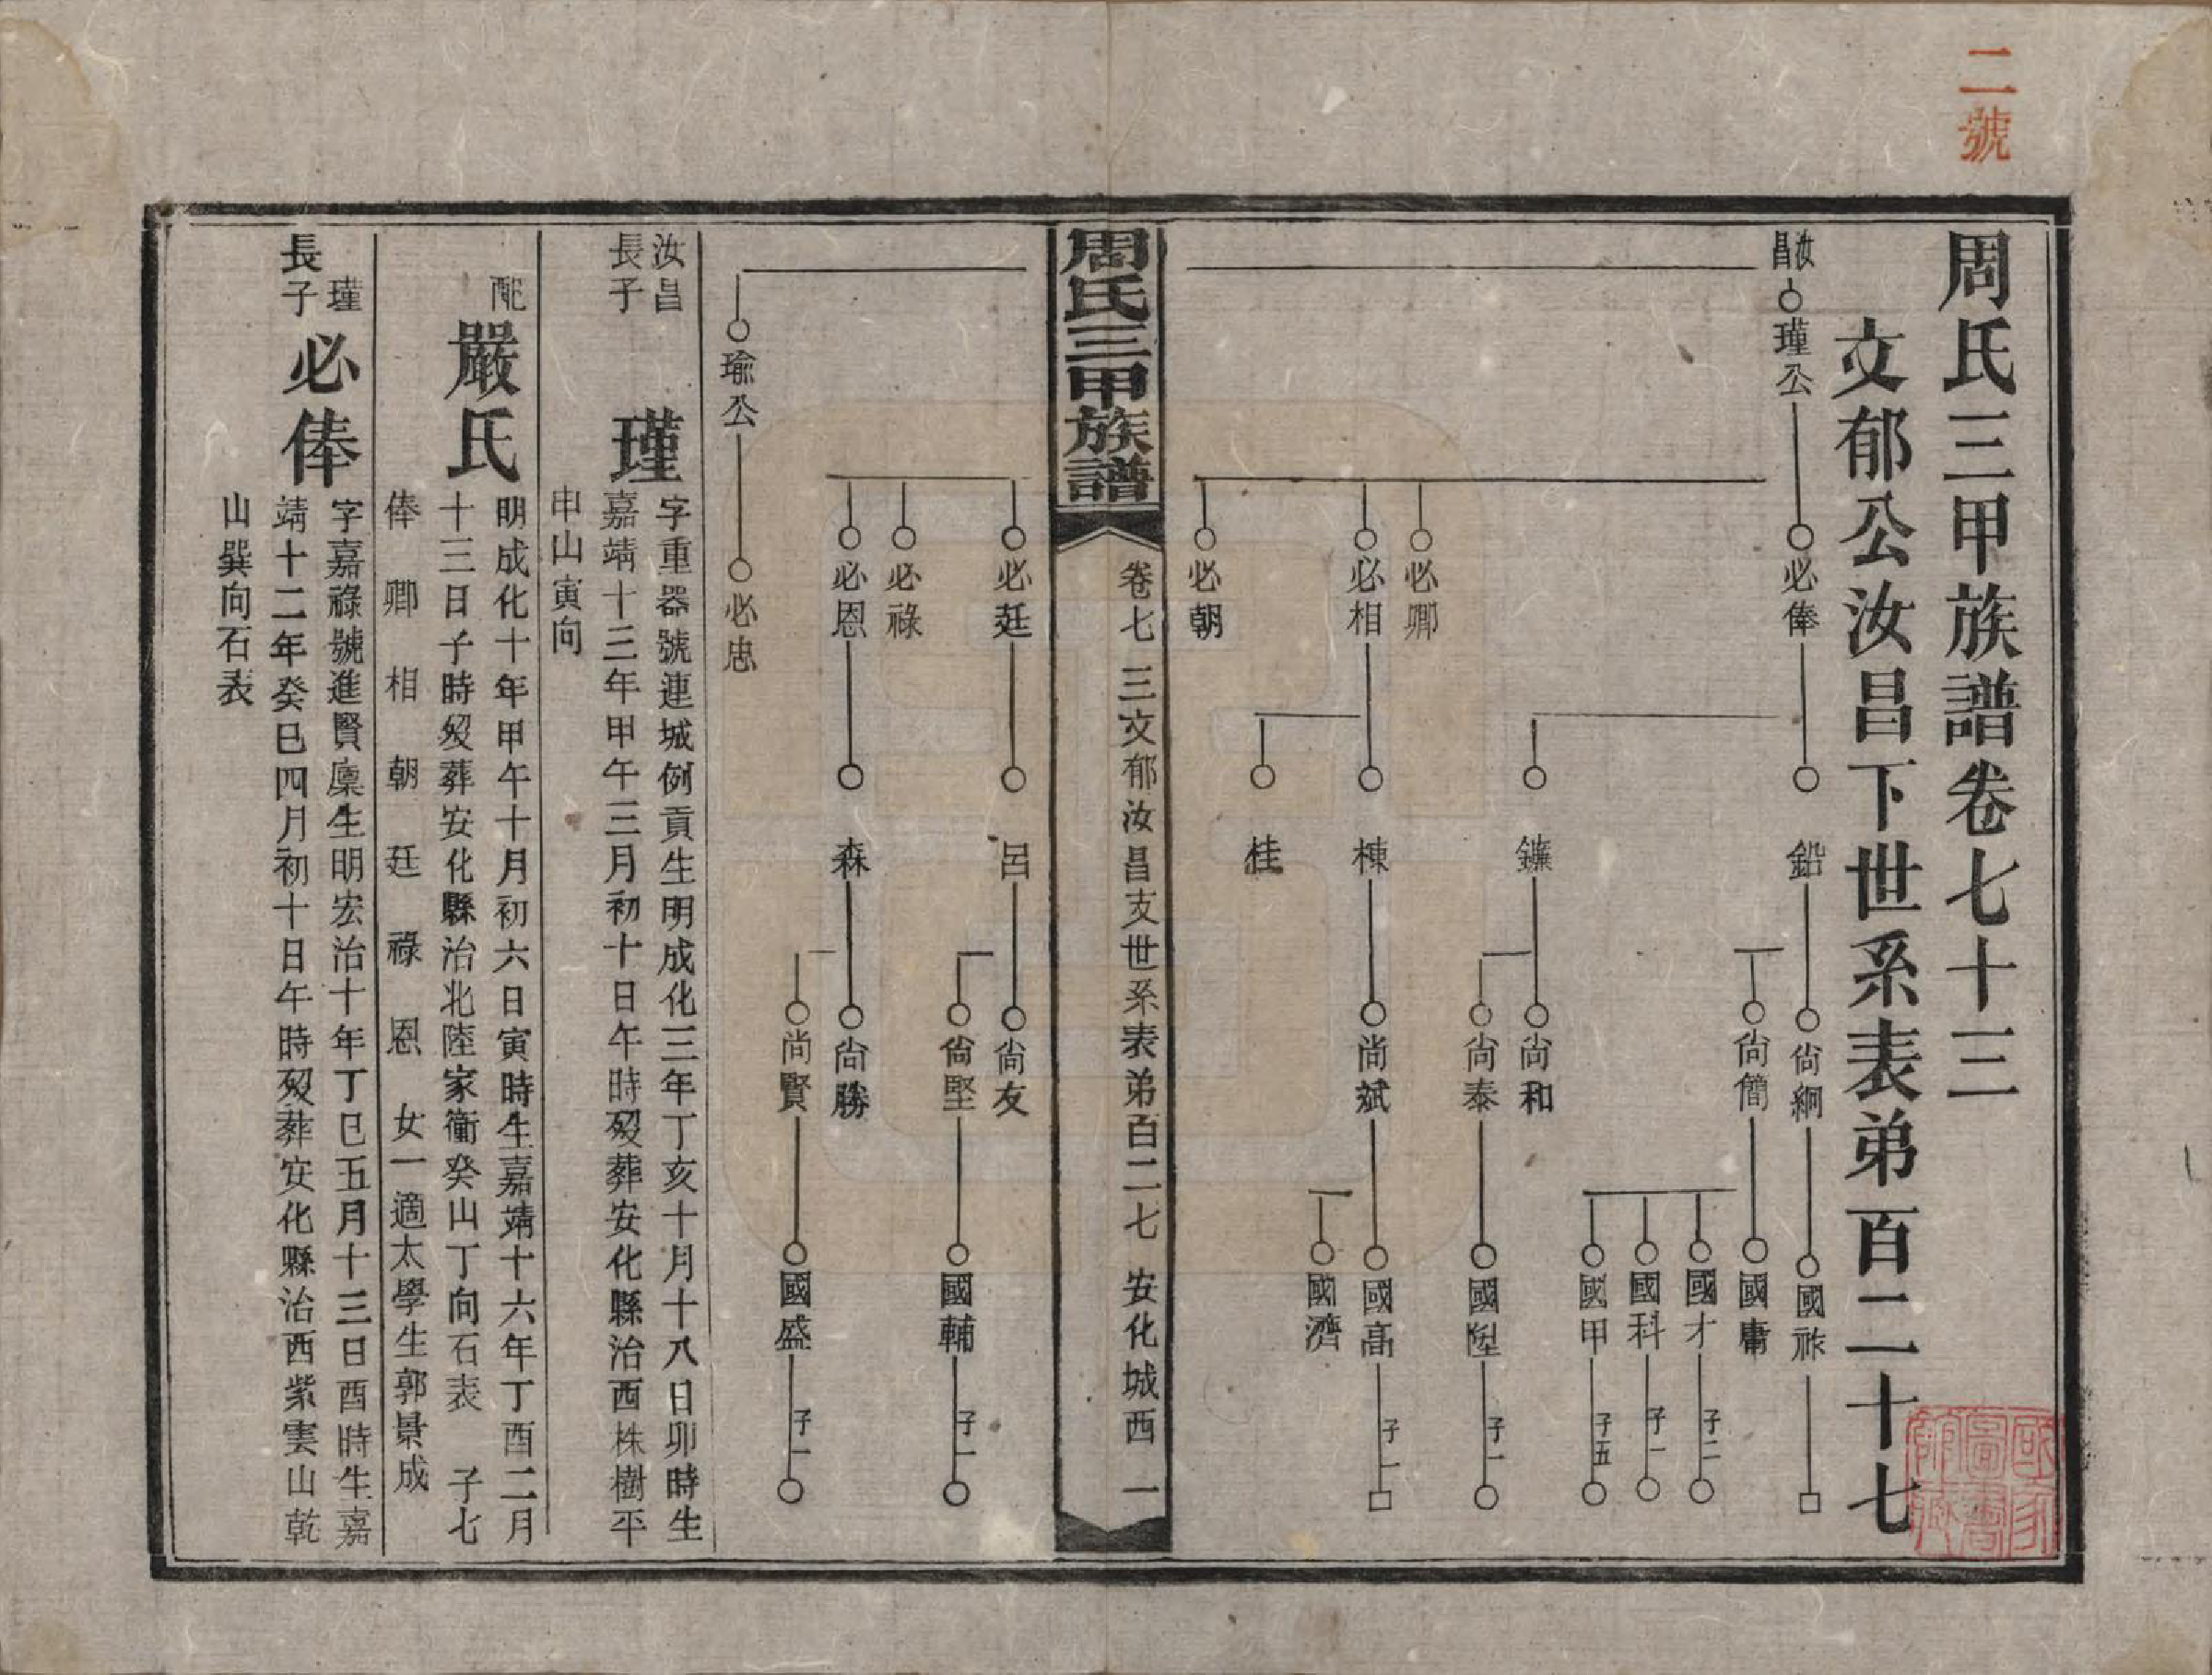 二號
周氏三甲族譜卷七十三
文郁公汝昌下世系表弟百二十七
汝昌 瑾公 必俸 鉛 尙綱 國祚
尙簡 國庸
國才 子二
國科 子一
國甲 子五
鐮 尙和
尙泰 國陞 子一
必卿
必相 棟 尙斌 國高 子一
國濟
桂
必朝
周氏三甲族譜 卷七 三文郁汝昌支世系表弟百二七 安化城西 一
必廷 呂 尙友
尙堅 國輔 子一
必祿
必恩 森 尙勝
尙賢 國盛 子一
瑜公 必忠
汝昌長子 瑾
字重器號連城例貢生明成化三年丁亥十月十八日卯時生
嘉靖十三年甲午三月初十日午時歿葬安化縣治西株樹平
申山寅向
配 嚴氏
明成化十年甲午十月初六日寅時生嘉靖十六年丁酉二月
十三日子時歿葬安化縣治北陸家衝癸山丁向石表 子七
俸 卿 相 朝 廷 祿 恩 女一適太學生郭景成
瑾長子 必俸
字嘉祿號進賢廩生明宏治十年丁巳五月十三日酉時生嘉
靖十二年癸巳四月初十日午時歿葬安化縣治西紫雲山乾
山巽向石表